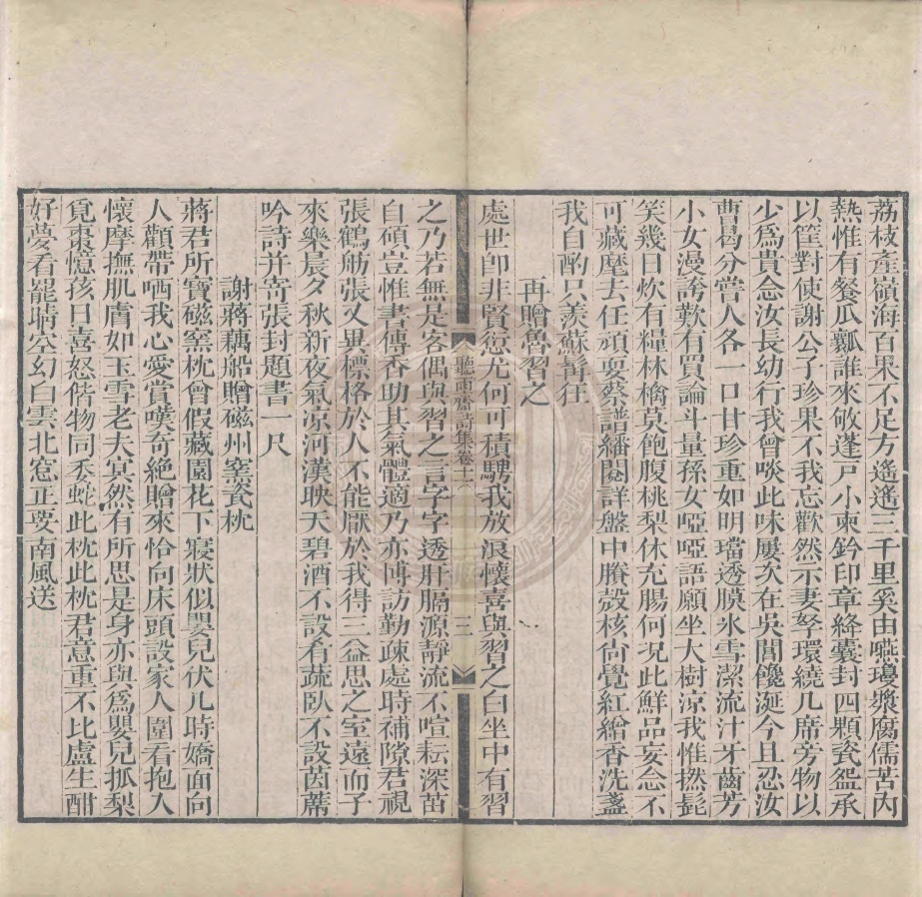 荔枝產嶺海百果不足方遙遙三千里奚由嚥瓊漿腐儒苦內
熱惟有餐瓜瓤誰來敂蓬戸小柬鈐印章絳囊封四顆瓷盌承
以筐對使謝公子珍果不我忘歡然示妻孥環繞几席旁物以
少爲貴念汝長幼行我曾啖此味屢次在吳閶饞涎今且忍汝
曹曷分嘗人各一口甘珍重如明璫透膜氷雪潔流汁牙齒芳
小女漫誇歎有買論斗量孫女啞啞語願坐大樹涼我惟撚髭
笑幾日炊有糧林檎莫飽腹桃梨休充腸何況此鮮品妄念不
可藏麾去任頑耍蔡譜繙閱詳盤中賸殼核尙覺紅繒香洗盞
我自酌只羨蘇髯狂
再贈魯習之
處世卽非賢愆尤何可積騁我放浪懷喜與習之白坐中有習
聽雨齋詩集卷十二 三
之乃若無是客偶與習之言字字透肝膈源靜流不喧耘深苗
自碩豈惟書傳香助其氣體適乃亦博訪勤疎處時補隙君視
張鶴舫張又異標格於人不能厭於我得三益思之室遠而子
來樂晨夕秋新夜氣凉河漢映天碧酒不設肴蔬臥不設茵蓆
吟詩并寄張封題書一尺
謝蔣藕船贈磁州窰瓷枕
蔣君所寶磁窰枕曾假藏園花下寢狀似嬰兒伏几時嬌面向
人顴帶哂我心愛賞嘆奇絶贈來恰向床頭設家人圍看抱入
懷摩撫肌膚如玉雪老夫㝠然有所思是身亦與爲嬰兒抓梨
覓棗憶孩日喜怒偕物同委蛇此枕此枕君意重不比盧生酣
好夢看罷晴空幻白雲北窓正要南風送